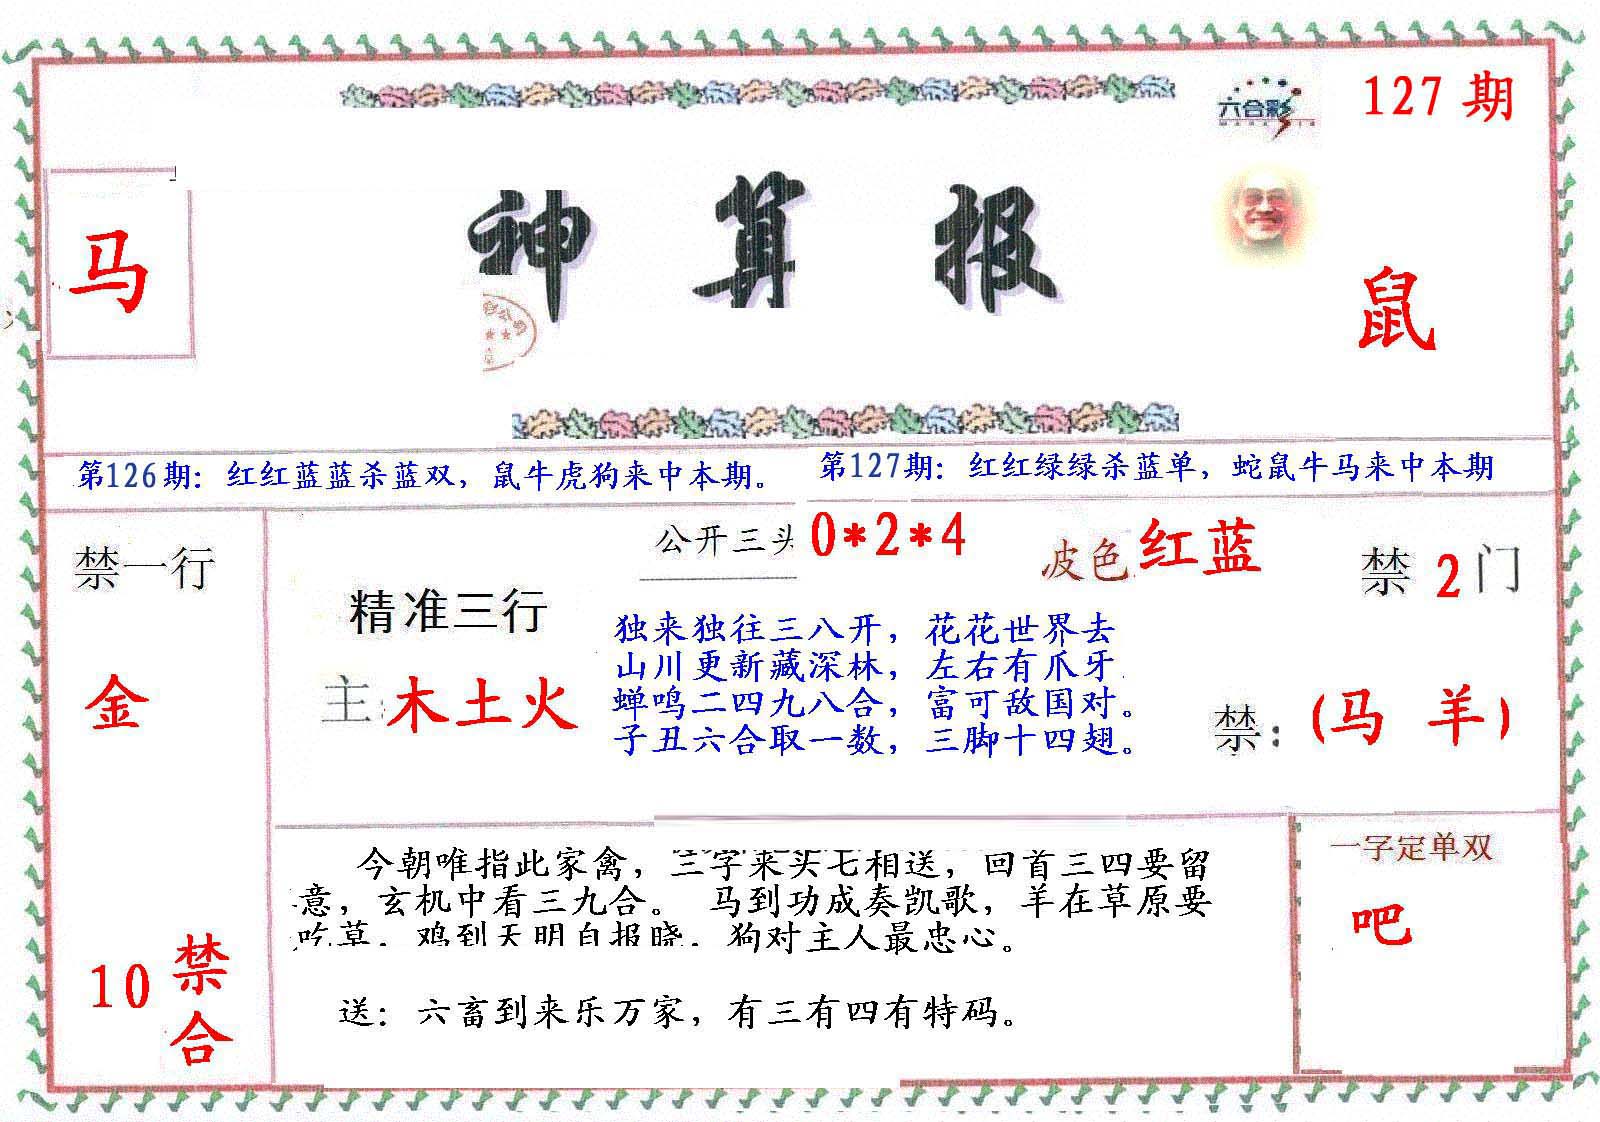 六合彩
127 期
马
神算报
鼠
第126期：红红蓝蓝杀蓝双，鼠牛虎狗来中本期。
第127期：红红绿绿杀蓝单，蛇鼠牛马来中本期
禁一行
金
10 禁合
公开三头 0*2*4
波色 红蓝
禁 2 门
精准三行
主：木土火
独来独往三八开，花花世界去
山川更新藏深林，左右有爪牙
蝉鸣二四九八合，富可敌国对。
子丑六合取一数，三脚十四翅。
禁：(马 羊)
今朝唯指此家禽，三字来头七相送，回首三四要留
意，玄机中看三九合。 马到功成奏凯歌，羊在草原要
吃草，鸡到天明自报晓，狗对主人最忠心。
送：六畜到来乐万家，有三有四有特码。
一字定单双
吧